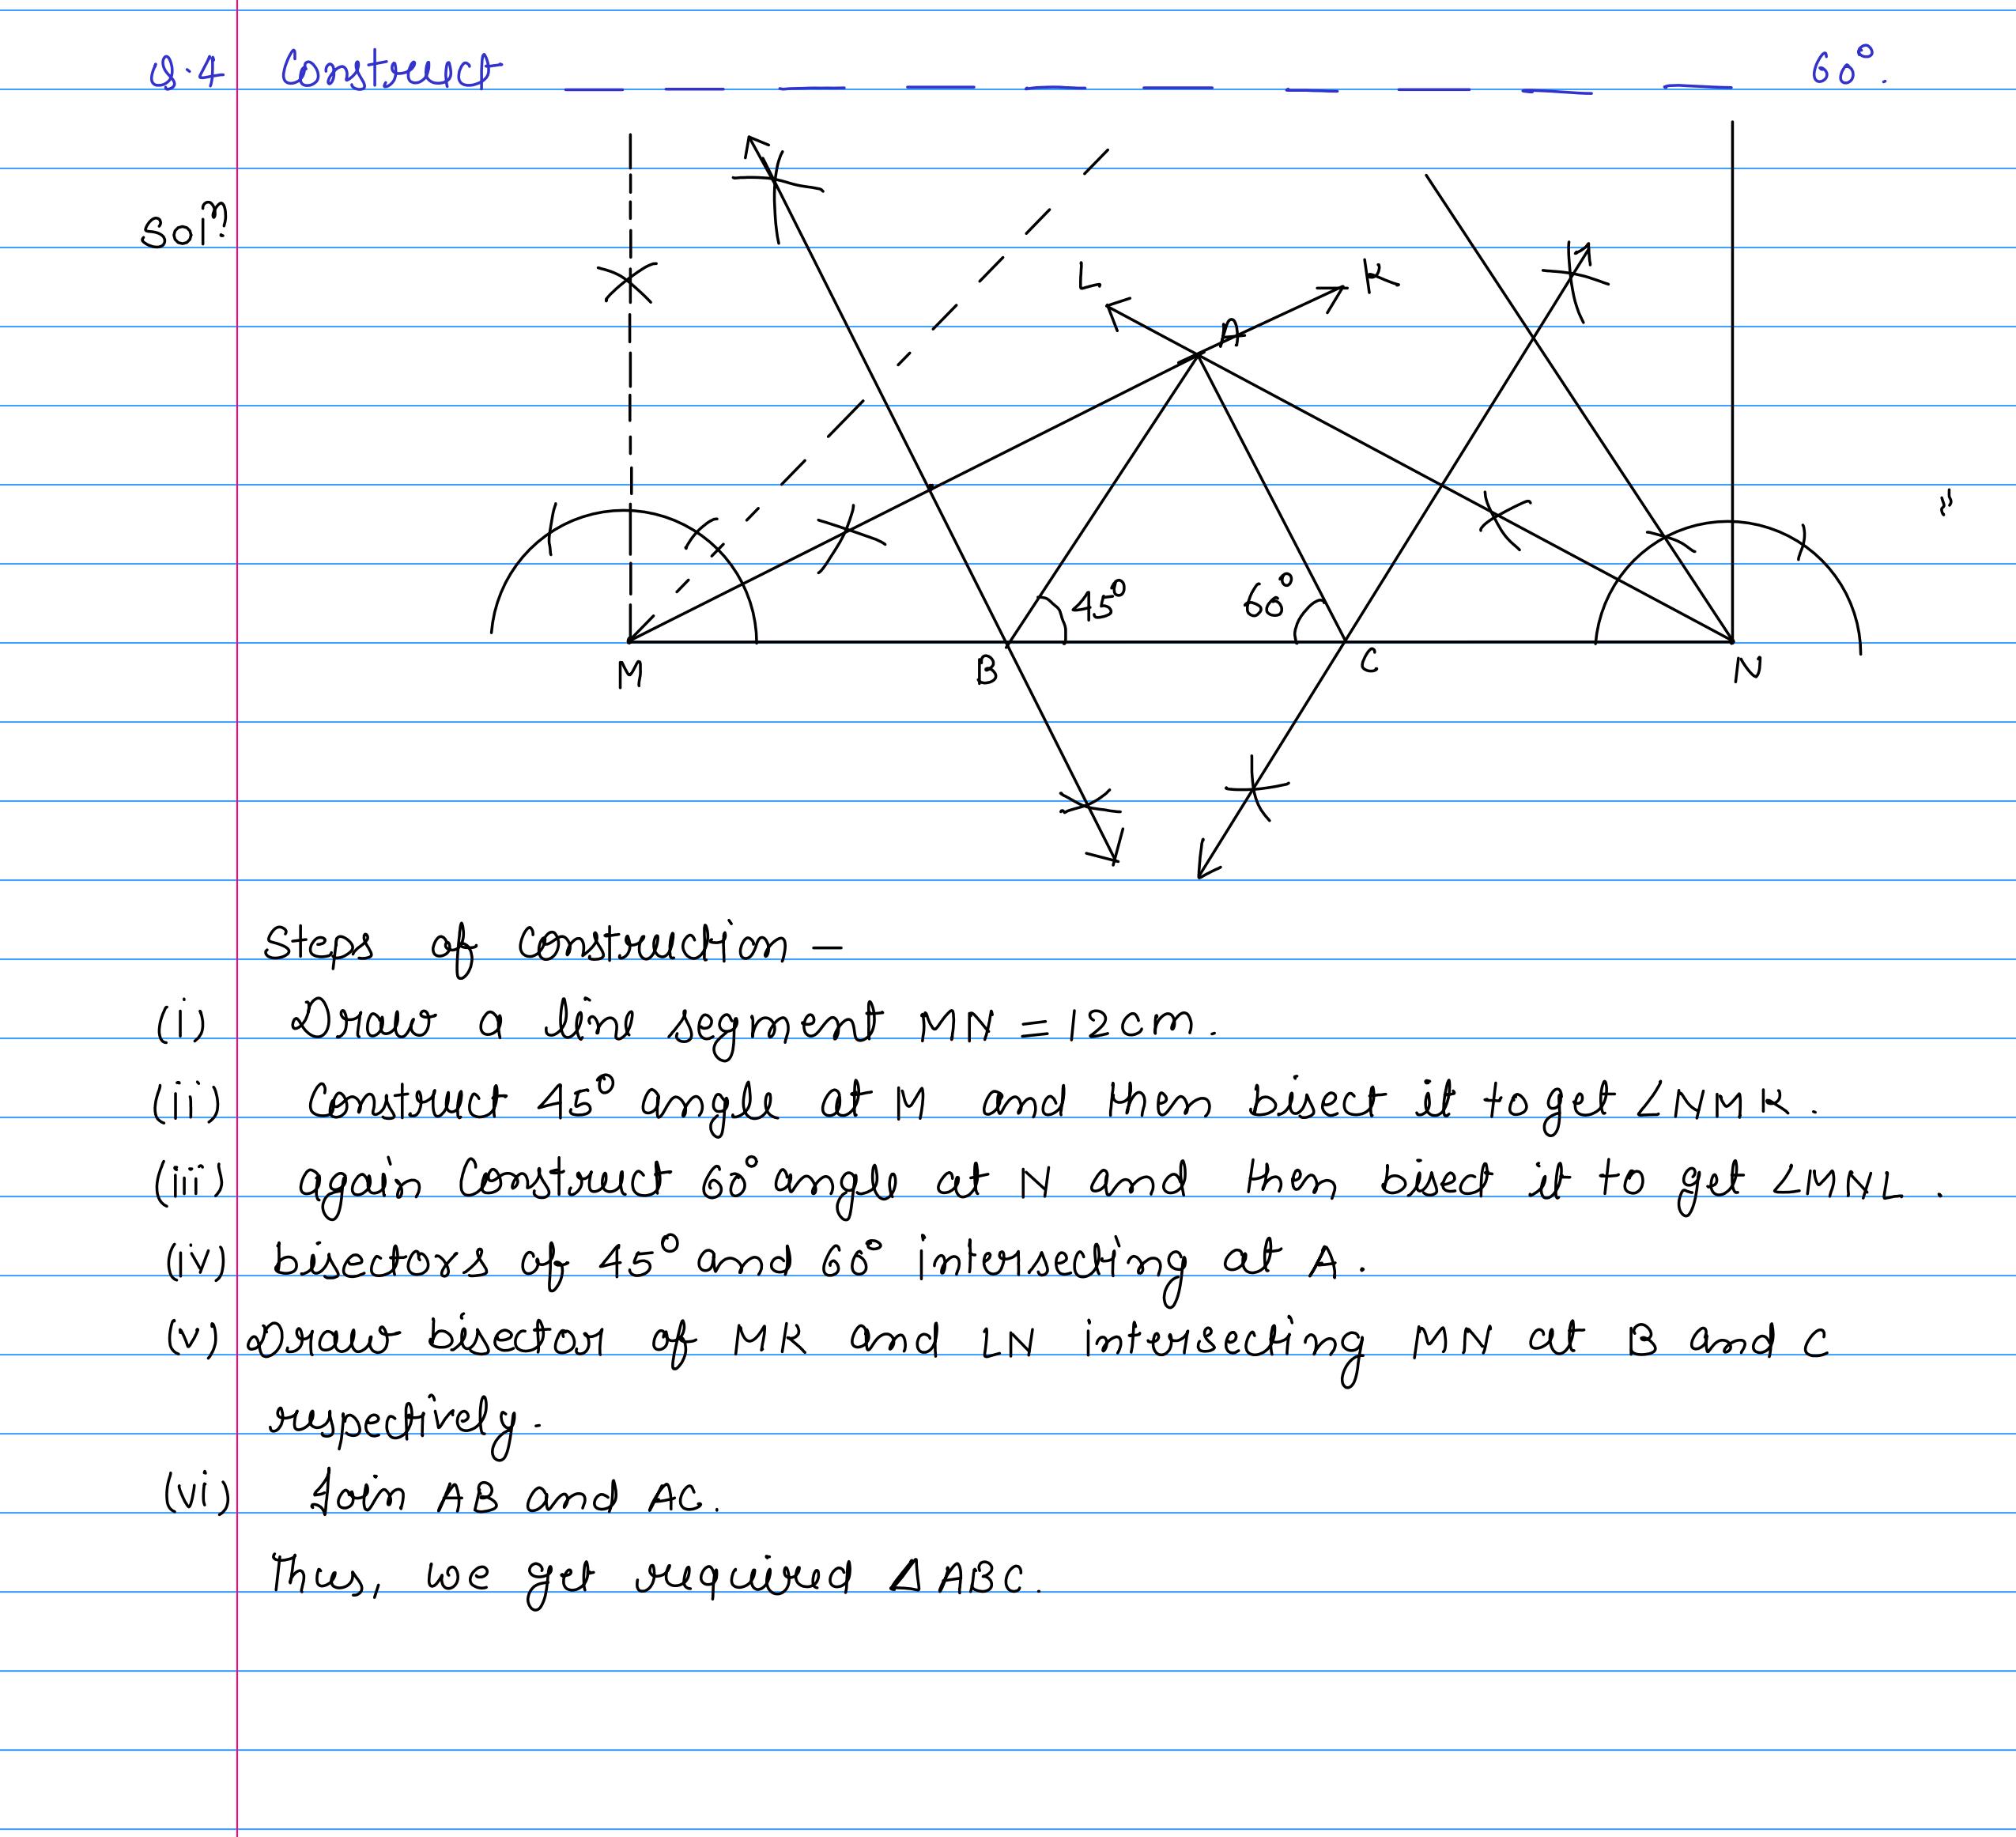 Q.4 Construct _ _ _ _ _ _ _ _ _ _ 60°.
Solⁿ.
L K
A
45° 60°
M B C N
Steps of construction —
(i) Draw a line segment MN = 12cm.
(ii) Construct 45° angle at M and then bisect it to get ∠NMK.
(iii) again Construct 60° angle at N and then bisect it to get ∠MNL.
(iv) bisectors of 45° and 60° intersecting at A.
(v) Draw bisector of MK and LN intersecting MN at B and C
respectively.
(vi) Join AB and AC.
Thus, we get required ΔABC.